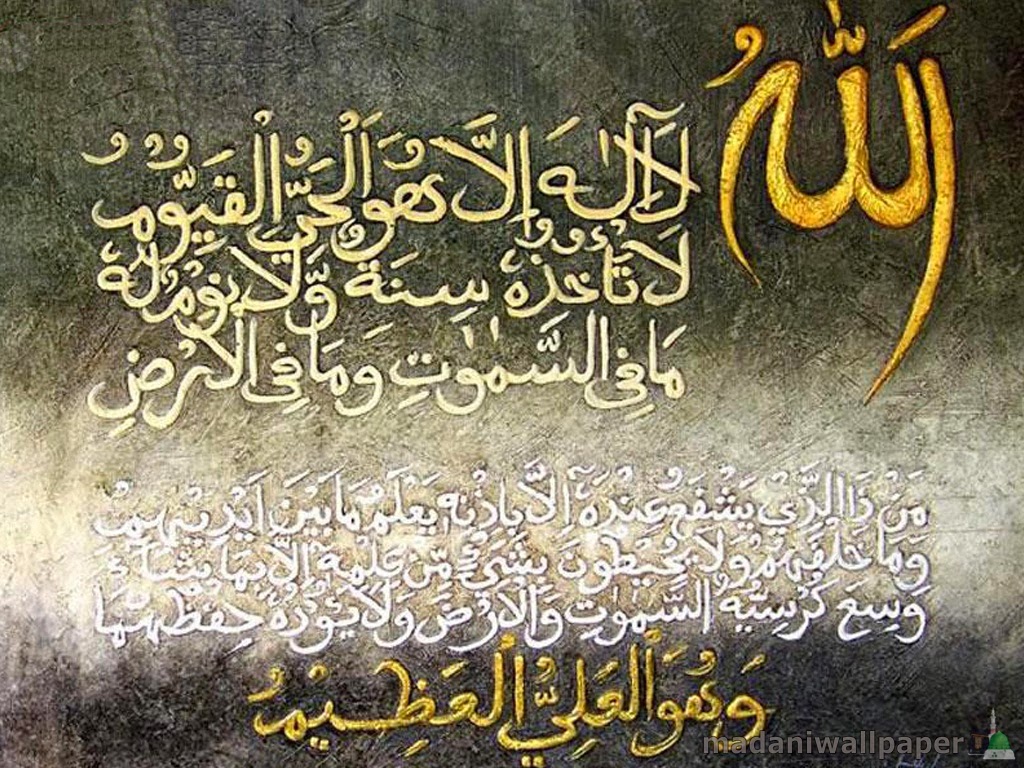 اللهُ
لَا إِلٰهَ إِلَّا هُوَ الْحَيُّ الْقَيُّومُ
لَا تَأْخُذُهُ سِنَةٌ وَّلَا نَوْمٌ لَهُ
مَا فِي السَّمٰوٰتِ وَمَا فِي الْأَرْضِ
مَنْ ذَا الَّذِيْ يَشْفَعُ عِنْدَهٗ إِلَّا بِإِذْنِهٖ يَعْلَمُ مَا بَيْنَ أَيْدِيْهِمْ
وَمَا خَلْفَهُمْ وَلَا يُحِيْطُوْنَ بِشَيْءٍ مِّنْ عِلْمِهٖ إِلَّا بِمَا شَاءَ
وَسِعَ كُرْسِيُّهُ السَّمٰوٰتِ وَالْأَرْضَ وَلَا يَئُوْدُهٗ حِفْظُهُمَا
وَهُوَ الْعَلِيُّ الْعَظِيْمُ
madaniwallpaper